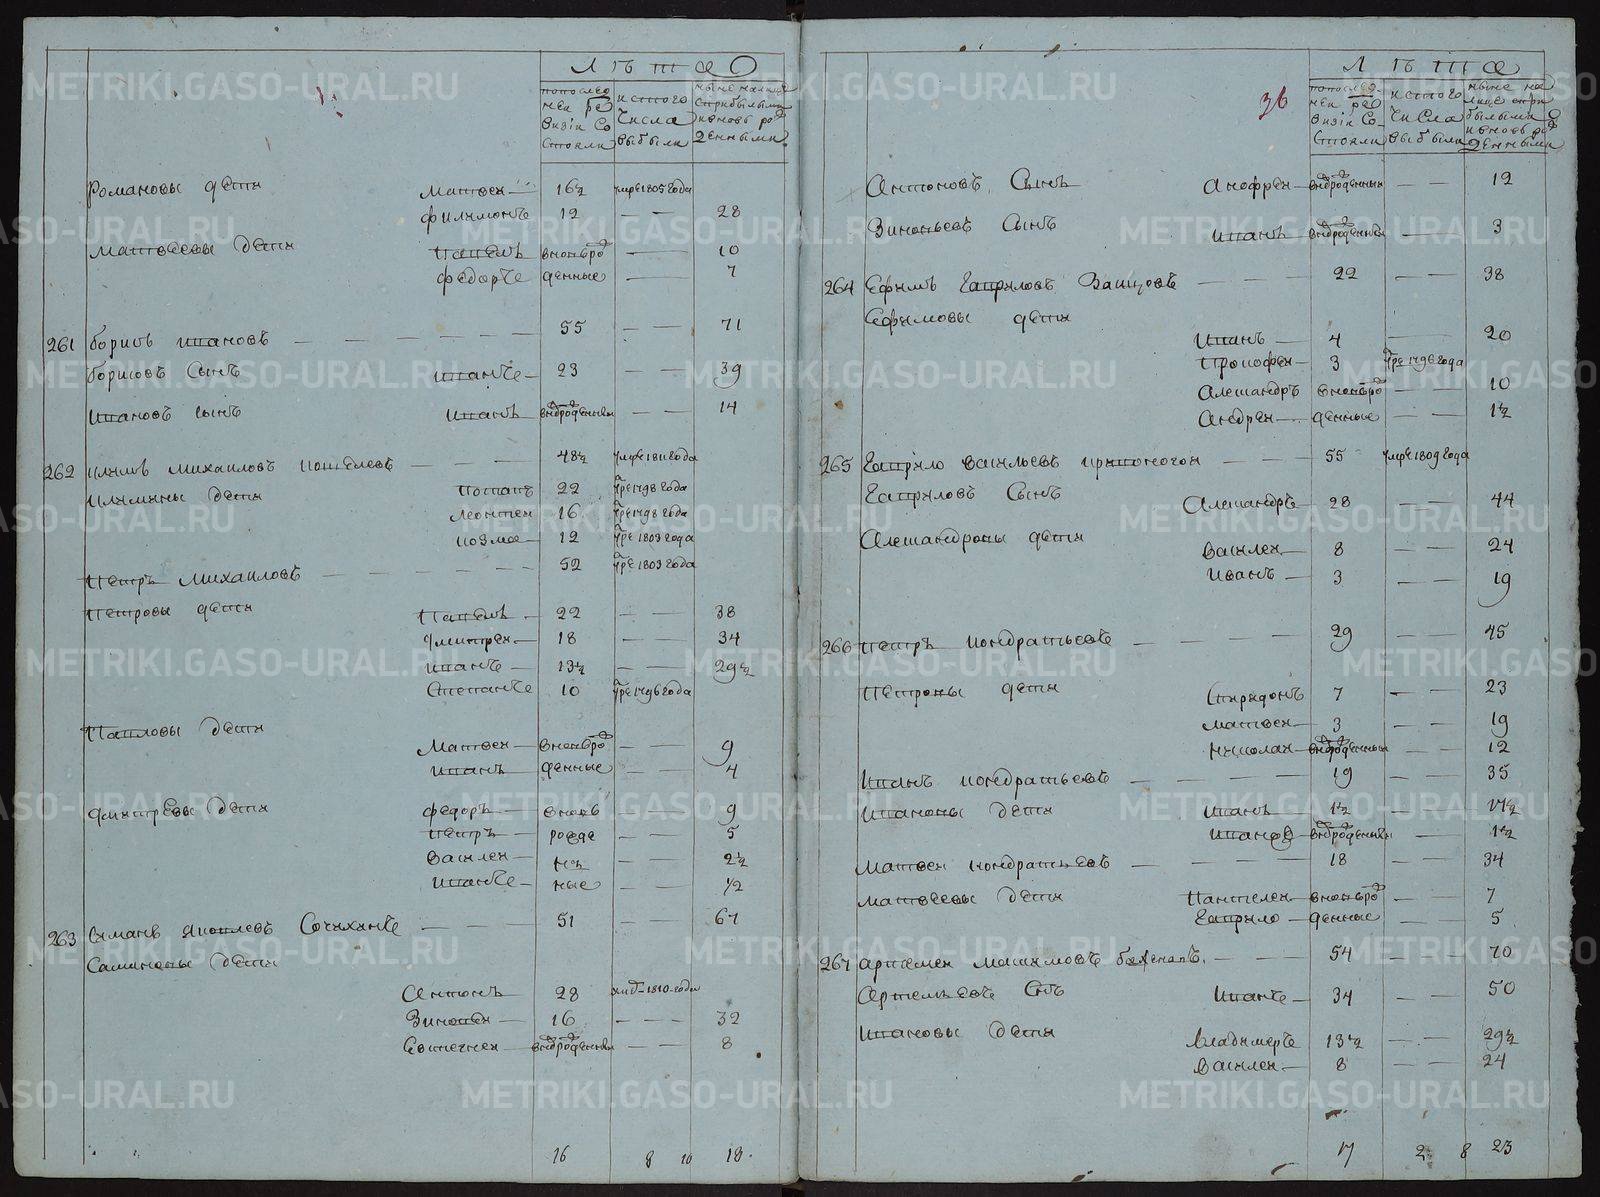 Лѣта
по послед
ней ре
визіи со
стояли
изтого
числа
выбыли
ныне налице
сприбылыми
и вновь рож
денными
Романовы дети Матвей 16½ умре 1805 года
Филимонъ 12 — — 28
Матвеевы дети Павелъ вновь рож — 10
Федоръ денные — 7
261 Борисъ Ивановъ — — — 55 — — 71
Борисовъ сынъ Иванъ — 23 — — 39
Ивановъ сынъ Иванъ вновьрожденный — — 14
262 Михаиловъ — — 48½ умре 1811 года
дети Потапъ 22 умре 1798 года
Леонтей 16 умре 1798 года
Козма 12 умре 1803 года
Петръ Михаиловъ — — — 52 умре 1803 года
Петровы дети Павелъ — 22 — — 38
Дмитрей — 18 — — 34
Иванъ — 13½ — — 29½
Степанъ 10 умре 1796 года
Павловы дети
Матвей — вновь рож — — 9
Иванъ денные — — 4
Дмитревы дети Федоръ — вновь — — 9
Петръ — рожде — — 5
Василей — — — 2½
Иванъ — ные — — ½
263 Яковлевъ — — 51 — — 67
дети
Антонъ 28 1810 года
Зиновей — 16 — — 32
Евтегней — вновьрожденный — — 8
16 8 10 18
36
Лѣта
по послед
ней ре
визіи со
стояли
изтого
числа
выбыли
ныне на
лице спри
былыми
и вновь рож
денными
Антоновъ сынъ Анофрей — вновьрожденный — — 12
Зиновьевъ сынъ Иванъ вновьрожденный — 3
264 Ефимъ Гавриловъ Заицовъ — — 22 — — 38
Ефимовы дети
Иванъ — 4 — 20
Прокофей — 3 умре 1796 года
Александръ вновь рож — 10
Андрей — денные — — 1½
265 Гаврило Васильевъ — — 55 умре 1809 года
Гавриловъ сынъ Александръ — 28 — — 44
Александровы дети
Василей — 8 — — 24
Иванъ — 3 — — 19
266 Петръ Кондратьевъ — — — 29 — — 45
Петровы дети Спиридонъ 7 — — 23
Матвей — 3 — — 19
Николай — вновьрожденный — — 12
Иванъ Кондратьевъ — — — 19 — — 35
Ивановы дети Иванъ — 1½ — — 17½
Иванъ вновьрожденный — — 1½
Матвей Кондратьевъ — — — 18 — — 34
Матвеевы дети Пантелей — вновь рож — — 7
Гаврило — денные — — 5
267 Артемей — — 54 — — 70
Артемьевъ сынъ Иванъ — 34 — — 50
Ивановы дети
Владимеръ 13½ — — 29½
Василей — 8 — — 24
17 2 8 23
METRIKI.GASO-URAL.RU